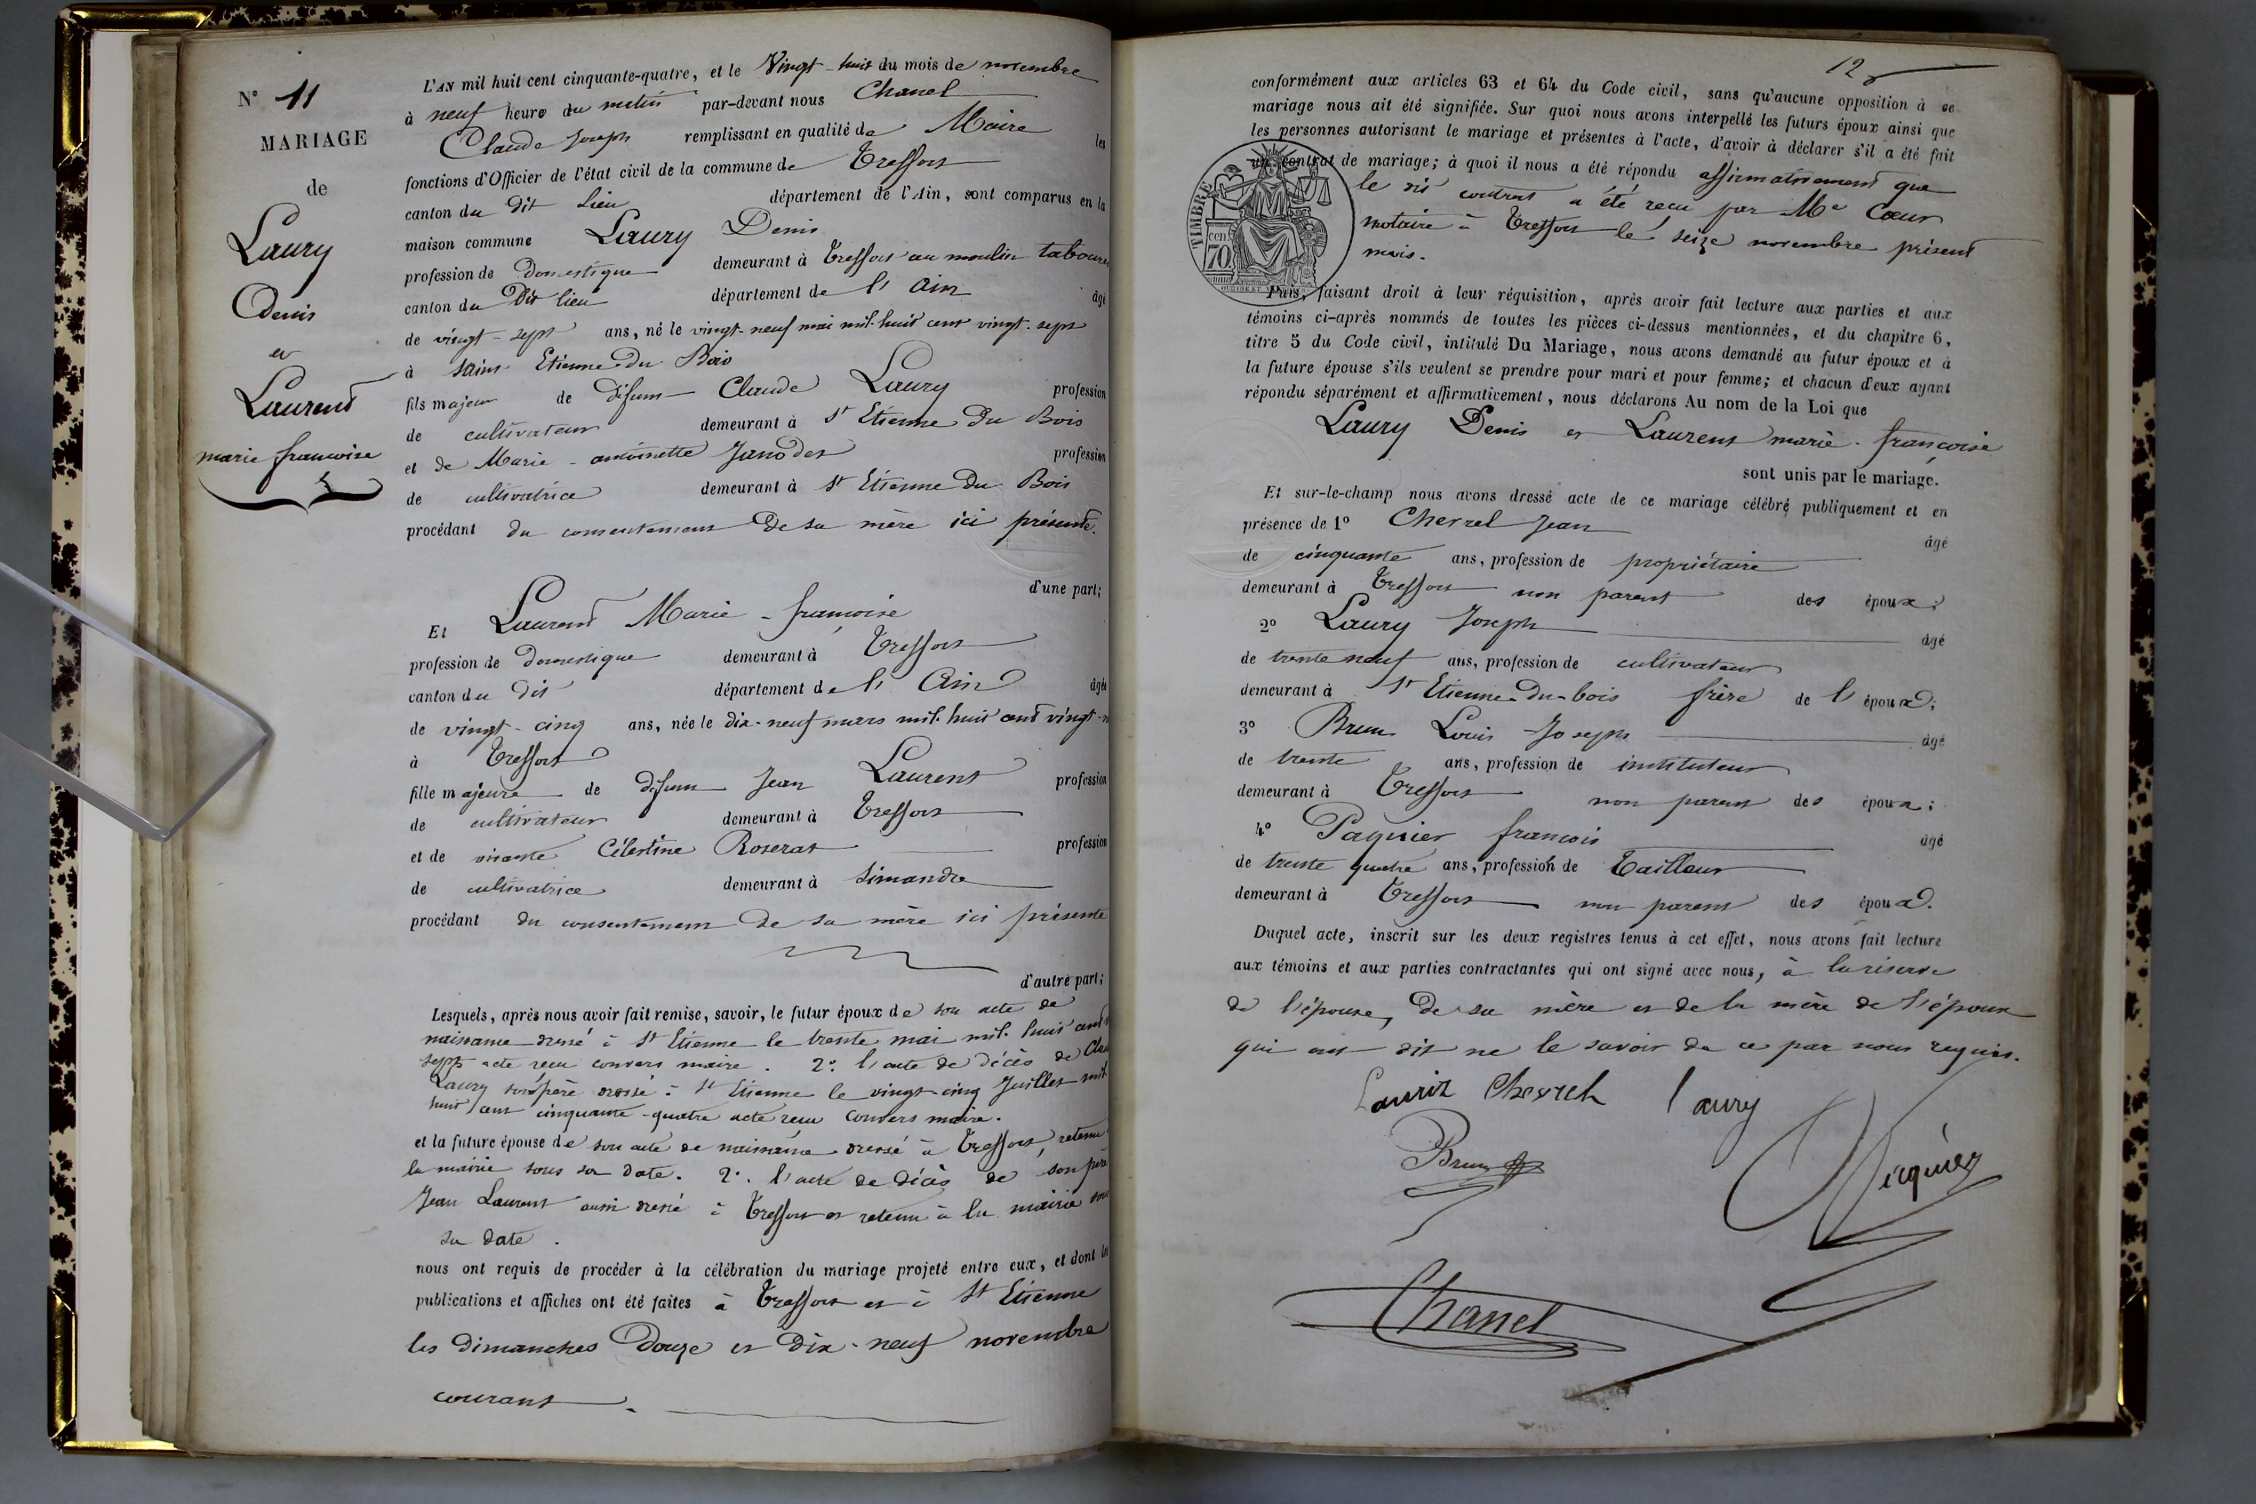 N° 11
MARIAGE
de
Laury
Denis
et
Laurent
marie françoise
L'AN mil huit cent cinquante-quatre, et le Vingt-huit du mois de novembre
à neuf heure du matin par-devant nous Chanel
Claude Joseph remplissant en qualité de Maire les
fonctions d'Officier de l'état civil de la commune de Treffort
canton du dit lieu département de l'Ain, sont comparus en la
maison commune Laury Denis
profession de Domestique demeurant à Treffort au moulin
canton du dit lieu département de l'Ain âgé
de vingt-sept ans, né le vingt-neuf mai mil huit cent vingt-sept
à saint Etienne du Bois
fils majeur de défunt Claude Laury profession
de cultivateur demeurant à St Etienne du Bois
et de Marie-antoinette Janodet profession
de cultivatrice demeurant à St Etienne du Bois
procédant du consentement de sa mère ici présente.
d'une part;
Et Laurent Marie-françoise
profession de Domestique demeurant à Treffort
canton du dit département de l'Ain âgée
de vingt-cinq ans, née le dix-neuf mars mil huit cent vingt-
à Treffort
fille majeure de défunt Jean Laurent profession
de cultivateur demeurant à Treffort
et de vivante Célestine Roserat profession
de cultivatrice demeurant à Simandre
procédant du consentement de sa mère ici présente
d'autre part;
Lesquels, après nous avoir fait remise, savoir, le futur époux de son acte de
naissance dressé à St Etienne le trente mai mil huit cent
sept acte reçu convers maire. 2° l'acte de décès de
Laury son père dressé à St Etienne le vingt-cinq Juillet mil
huit cent cinquante-quatre acte reçu Convers maire.
et la future épouse de son acte de naissance dressé à Treffort, retenu
la mairie sous sa date. 2° l'acte de décès de son père
Jean Laurent aussi dressé à Treffort et retenu à la mairie sous
sa date.
nous ont requis de procéder à la célébration du mariage projeté entre eux, et dont les
publications et affiches ont été faites à Treffort et à St Etienne
les dimanches Douze et Dix-neuf novembre
courant.
12
conformément aux articles 63 et 64 du Code civil, sans qu'aucune opposition à ce
mariage nous ait été signifiée. Sur quoi nous avons interpellé les futurs époux ainsi que
les personnes autorisant le mariage et présentes à l'acte, d'avoir à déclarer s'il a été fait
un contrat de mariage; à quoi il nous a été répondu affirmativement que
le dit contrat a été reçu par Me Cœur
notaire à Treffort le seize novembre présent
mois.
TIMBRE
70 cen
Puis, faisant droit à leur réquisition, après avoir fait lecture aux parties et aux
témoins ci-après nommés de toutes les pièces ci-dessus mentionnées, et du chapitre 6,
titre 5 du Code civil, intitulé Du Mariage, nous avons demandé au futur époux et à
la future épouse s'ils veulent se prendre pour mari et pour femme; et chacun d'eux ayant
répondu séparément et affirmativement, nous déclarons Au nom de la Loi que
Laury Denis et Laurent marie-françoise
sont unis par le mariage.
Et sur-le-champ nous avons dressé acte de ce mariage célébré publiquement et en
présence de 1° Chevrel Jean âgé
de cinquante ans, profession de propriétaire
demeurant à Treffort non parent des époux;
2° Laury Joseph âgé
de trente neuf ans, profession de cultivateur
demeurant à St Etienne-du-bois frère de l'époux;
3° Brun Louis Joseph âgé
de trente ans, profession de instituteur
demeurant à Treffort non parent des époux;
4° Paquier françois âgé
de trente quatre ans, profession de Tailleur
demeurant à Treffort non parent des époux.
Duquel acte, inscrit sur les deux registres tenus à cet effet, nous avons fait lecture
aux témoins et aux parties contractantes qui ont signé avec nous, à la réserve
de l'épouse, de sa mère et de la mère de l'époux
qui ont dit ne le savoir de ce par nous requis.
Chevrel Laury
Brun
Chanel